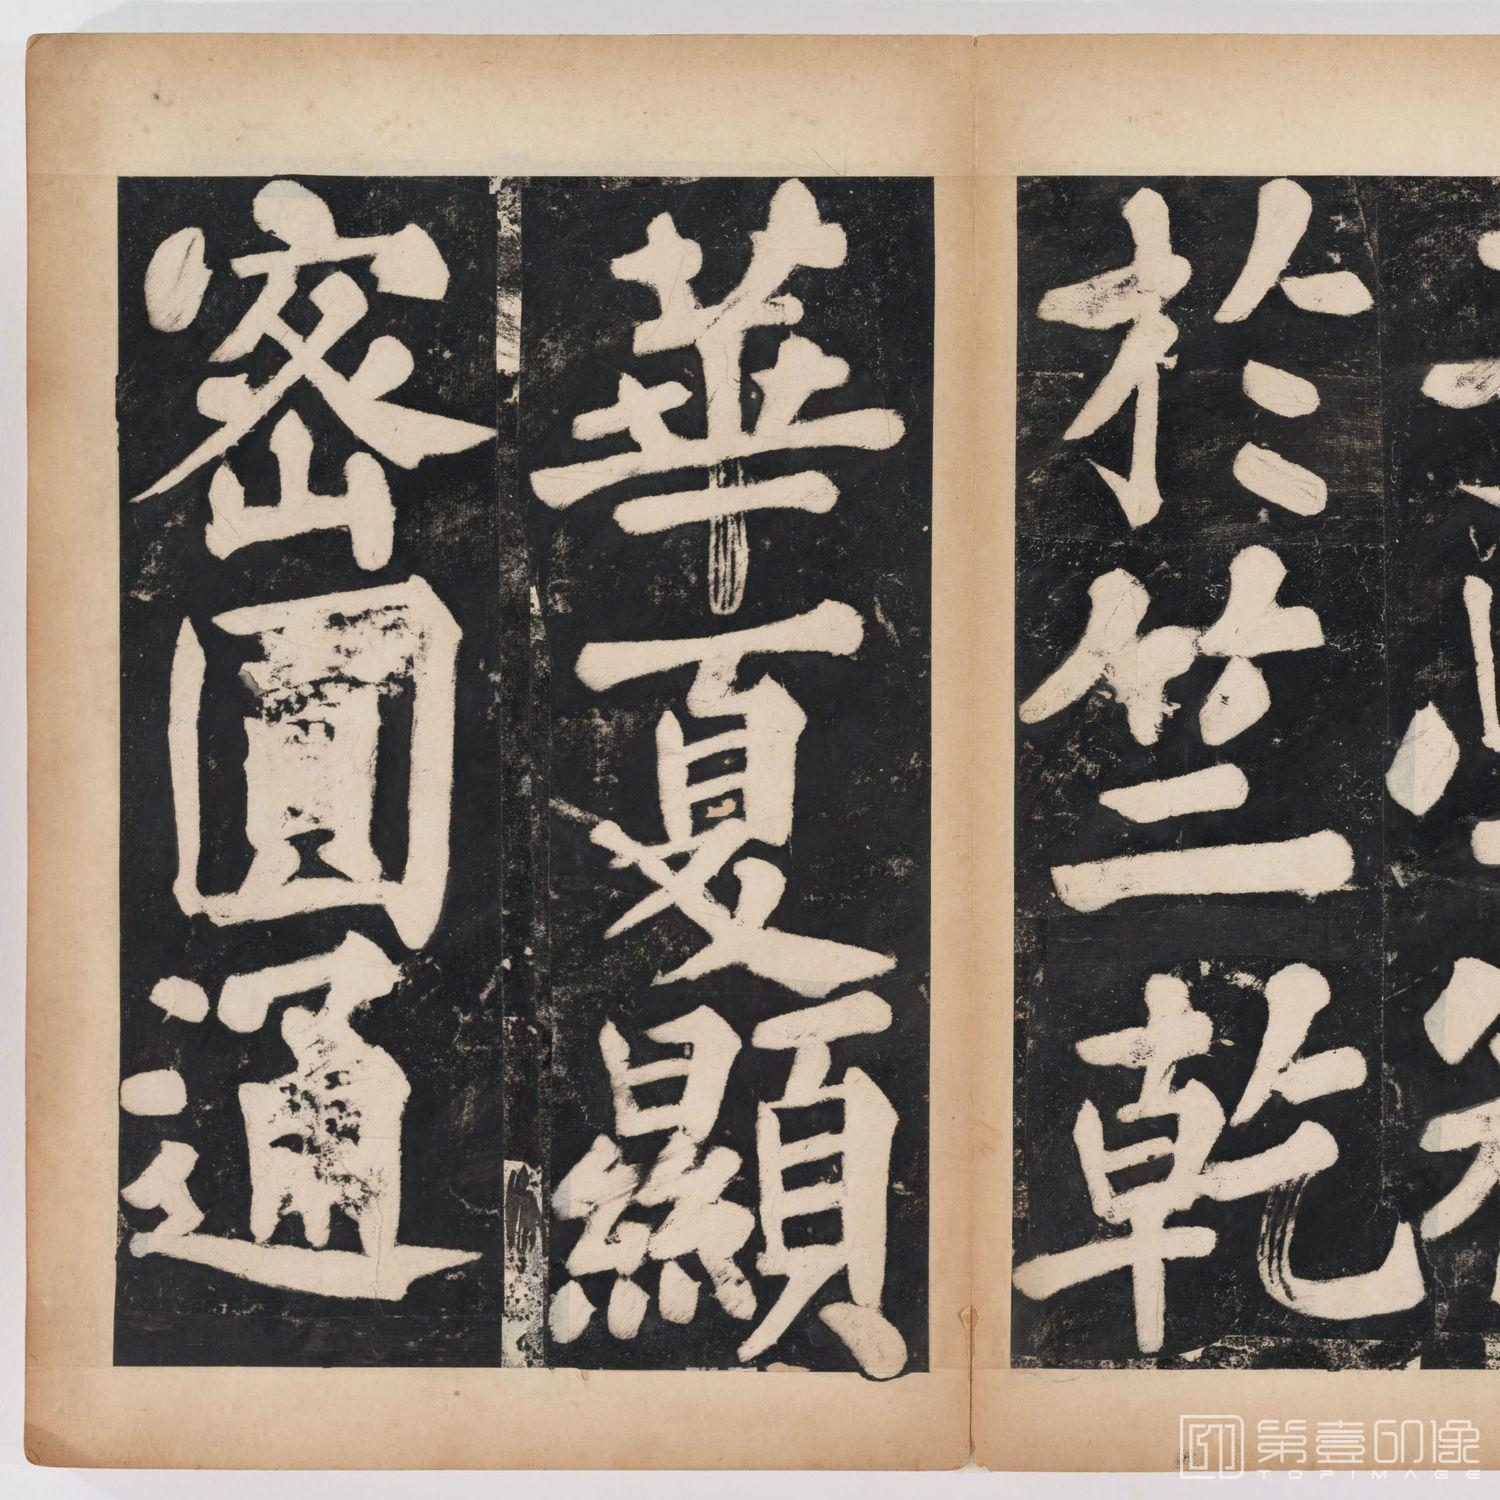 於竺乾
華夏顯
密圓通
第壹印像
TOPIMAGE